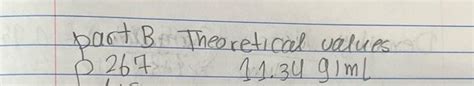 part B Theoretical values
267 11.34 g/ml